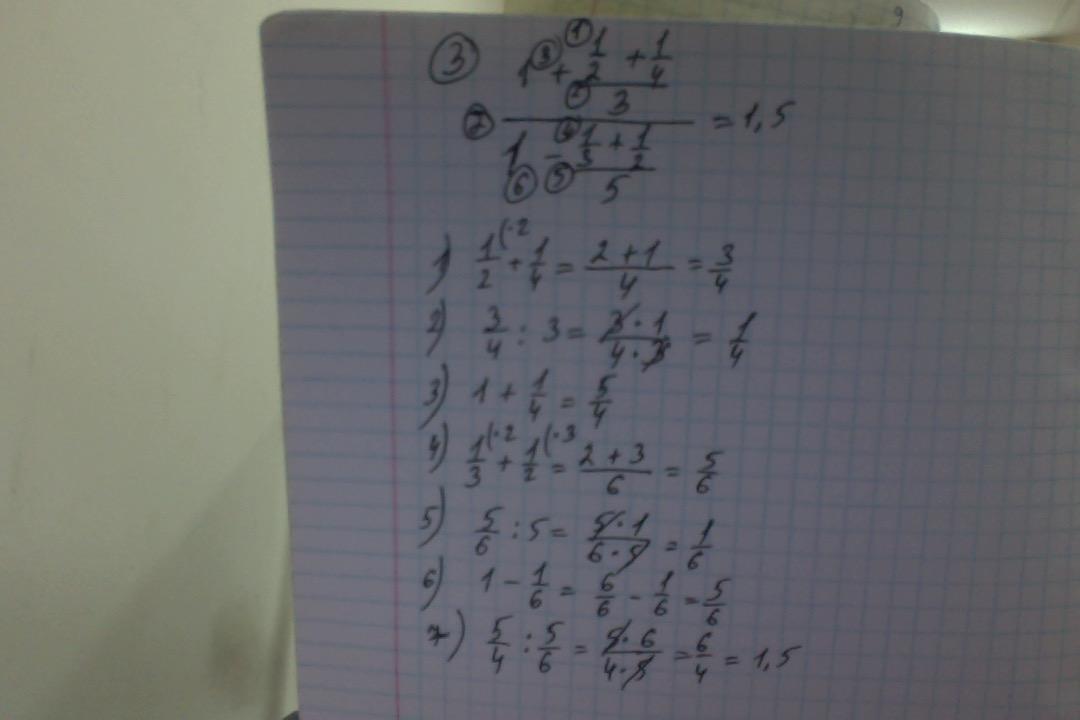 9
③ 1 ③+ ①1/2 + 1/4
② 3
⑦ = 1,5
1 - ④1/3 + 1/2
⑥ ⑤ 5
1) 1/2 (·2 + 1/4 = 2+1/4 = 3/4
2) 3/4 : 3 = 3·1/4·3 = 1/4
3) 1 + 1/4 = 5/4
4) 1/3 (·2 + 1/2 (·3 = 2+3/6 = 5/6
5) 5/6 : 5 = 5·1/6·5 = 1/6
6) 1 - 1/6 = 6/6 - 1/6 = 5/6
7) 5/4 : 5/6 = 5·6/4·5 = 6/4 = 1,5